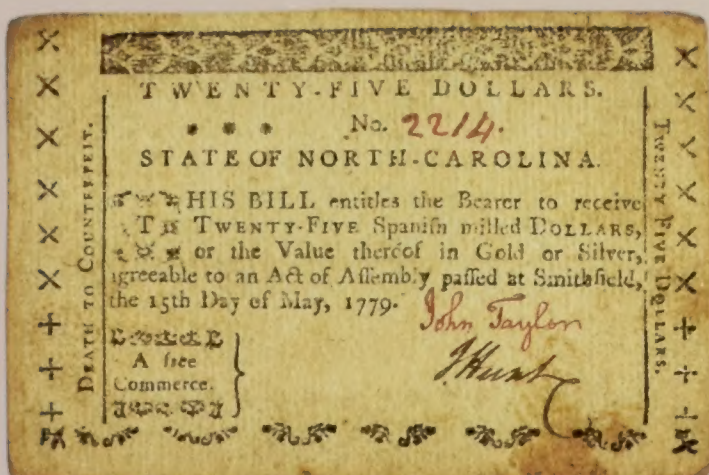 TWENTY-FIVE DOLLARS.
No. 2214.
STATE OF NORTH-CAROLINA.
THIS BILL entitles the Bearer to receive
TWENTY-FIVE Spaniſh milled DOLLARS,
or the Value thereof in Gold or Silver,
agreeable to an Act of Aſſembly paſſed at Smithfield,
the 15th Day of May, 1779.
John Taylor
J Hunt
A free
Commerce.
DEATH TO COUNTERFEIT.
TWENTY FIVE DOLLARS.